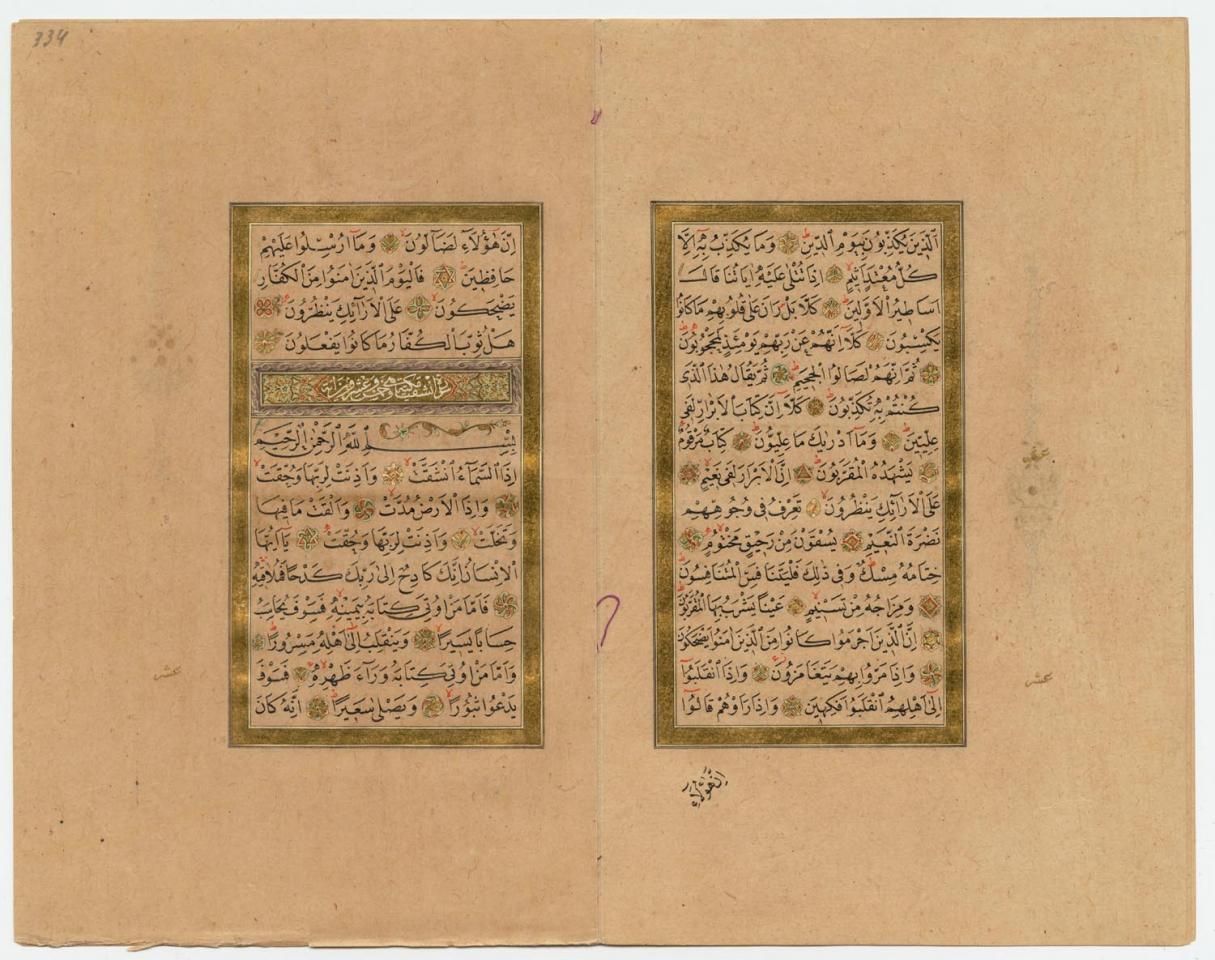 334
اَلَّذ۪ينَ يُكَذِّبُونَ بِيَوْمِ الدّ۪ينِ وَمَا يُكَذِّبُ بِه۪ٓ اِلَّا
كُلُّ مُعْتَدٍ اَث۪يمٍ اِذَا تُتْلٰى عَلَيْهِ اٰيَاتُنَا قَالَ
اَسَاط۪يرُ الْاَوَّل۪ينَ كَلَّا بَلْ رَانَ عَلٰى قُلُوبِهِمْ مَا كَانُوا
يَكْسِبُونَ كَلَّٓا اِنَّهُمْ عَنْ رَبِّهِمْ يَوْمَئِذٍ لَمَحْجُوبُونَ
ثُمَّ اِنَّهُمْ لَصَالُوا الْجَح۪يمِ ثُمَّ يُقَالُ هٰذَا الَّذ۪ى
كُنْتُمْ بِه۪ تُكَذِّبُونَ كَلَّٓا اِنَّ كِتَابَ الْاَبْرَارِ لَف۪ى
عِلِّيّ۪ينَ وَمَٓا اَدْرٰيكَ مَا عِلِّيُّونَ كِتَابٌ مَرْقُومٌ
يَشْهَدُهُ الْمُقَرَّبُونَ اِنَّ الْاَبْرَارَ لَف۪ى نَع۪يمٍ
عَلَى الْاَرَٓائِكِ يَنْظُرُونَ تَعْرِفُ ف۪ى وُجُوهِهِمْ
نَضْرَةَ النَّع۪يمِ يُسْقَوْنَ مِنْ رَح۪يقٍ مَخْتُومٍ
خِتَامُهُ مِسْكٌ وَف۪ى ذٰلِكَ فَلْيَتَنَافَسِ الْمُتَنَافِسُونَ
وَمِزَاجُهُ مِنْ تَسْن۪يمٍ عَيْنًا يَشْرَبُ بِهَا الْمُقَرَّبُونَ
اِنَّ الَّذ۪ينَ اَجْرَمُوا كَانُوا مِنَ الَّذ۪ينَ اٰمَنُوا يَضْحَكُونَ
وَاِذَا مَرُّوا بِهِمْ يَتَغَامَزُونَ وَاِذَا انْقَلَبُٓوا
اِلٰٓى اَهْلِهِمُ انْقَلَبُوا فَكِه۪ينَ وَاِذَا رَاَوْهُمْ قَالُٓوا
اِنَّ هٰٓؤُلَٓاءِ
عشر
اِنَّ هٰٓؤُلَٓاءِ لَضَٓالُّونَ وَمَٓا اُرْسِلُوا عَلَيْهِمْ
حَافِظ۪ينَ فَالْيَوْمَ الَّذ۪ينَ اٰمَنُوا مِنَ الْكُفَّارِ
يَضْحَكُونَ عَلَى الْاَرَٓائِكِ يَنْظُرُونَ
هَلْ ثُوِّبَ الْكُفَّارُ مَا كَانُوا يَفْعَلُونَ
بِسْمِ اللّٰهِ الرَّحْمٰنِ الرَّح۪يمِ
اِذَا السَّمَٓاءُ انْشَقَّتْ وَاَذِنَتْ لِرَبِّهَا وَحُقَّتْ
وَاِذَا الْاَرْضُ مُدَّتْ وَاَلْقَتْ مَا ف۪يهَا
وَتَخَلَّتْ وَاَذِنَتْ لِرَبِّهَا وَحُقَّتْ يَٓا اَيُّهَا
الْاِنْسَانُ اِنَّكَ كَادِحٌ اِلٰى رَبِّكَ كَدْحًا فَمُلَاق۪يهِ
فَاَمَّا مَنْ اُو۫تِىَ كِتَابَهُ بِيَم۪ينِه۪ فَسَوْفَ يُحَاسَبُ
حِسَابًا يَس۪يرًا وَيَنْقَلِبُ اِلٰٓى اَهْلِه۪ مَسْرُورًا
وَاَمَّا مَنْ اُو۫تِىَ كِتَابَهُ وَرَٓاءَ ظَهْرِه۪ فَسَوْفَ
يَدْعُوا ثُبُورًا وَيَصْلٰى سَع۪يرًا اِنَّهُ كَانَ
عشر